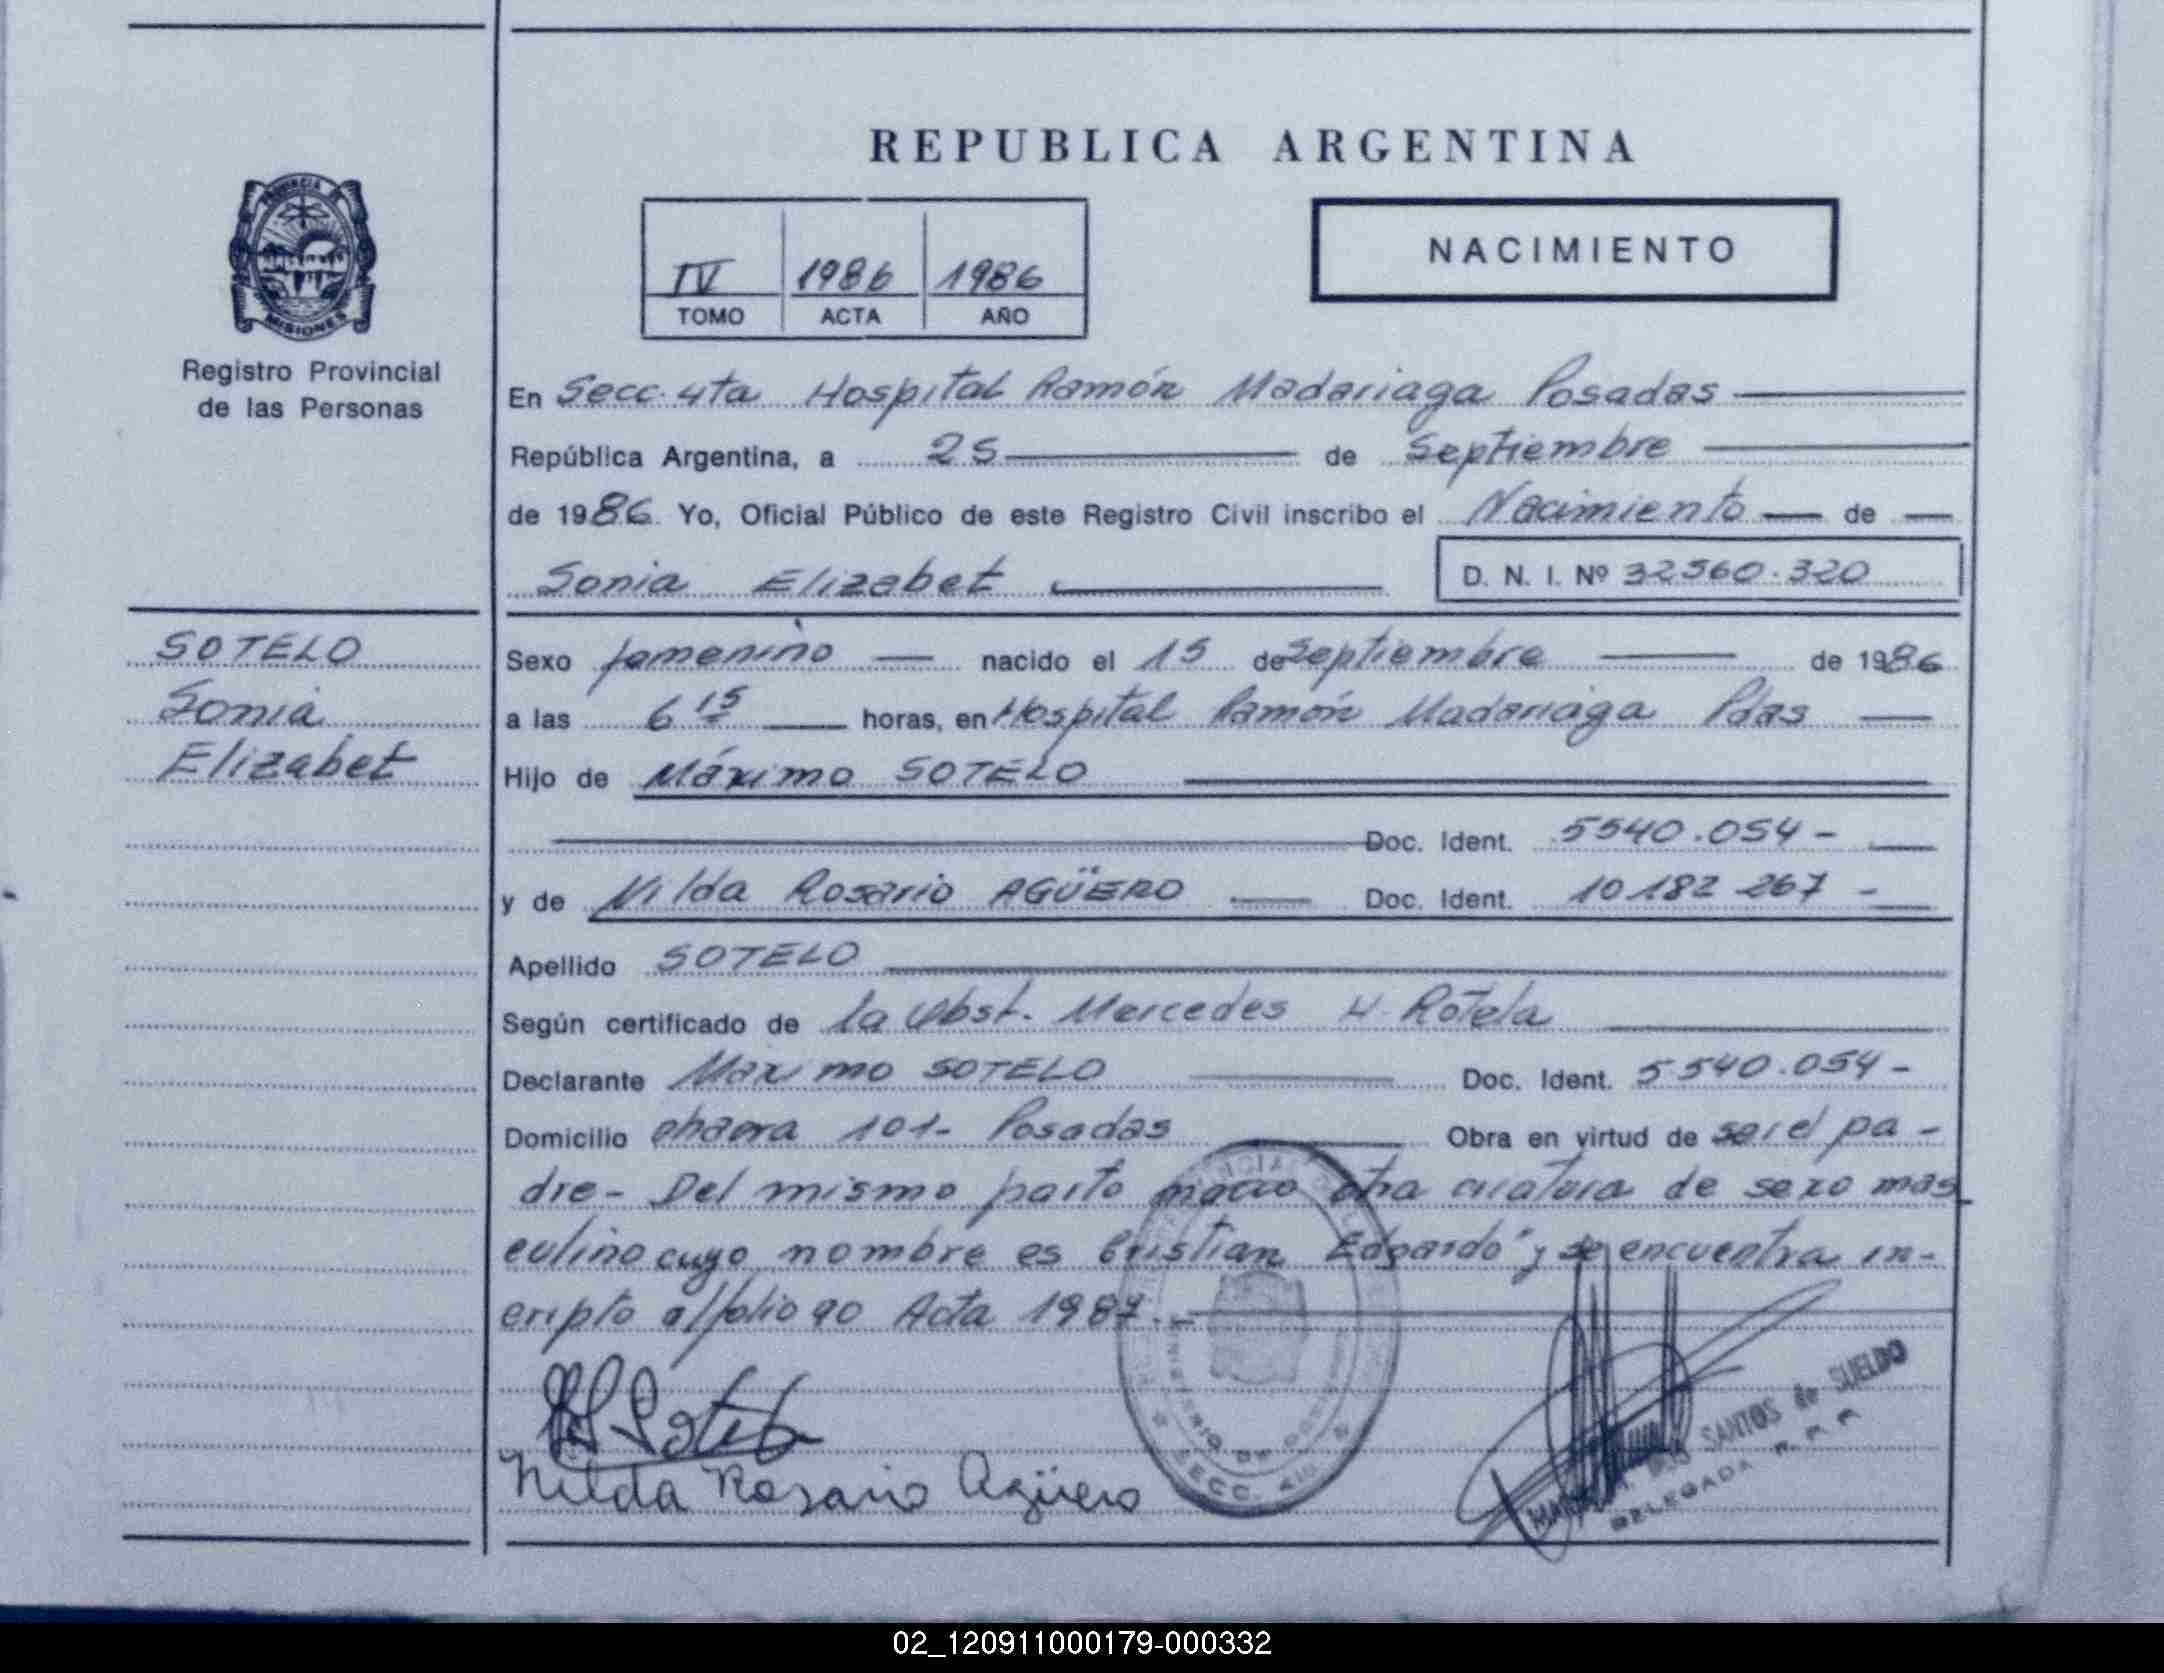 REPUBLICA ARGENTINA
PROVINCIA DE
MISIONES
Registro Provincial
de las Personas
IV 1986 1986
TOMO ACTA AÑO
NACIMIENTO
En Secc. 4ta Hospital Ramón Madariaga Posadas
República Argentina, a 25 de Septiembre
de 1986. Yo, Oficial Público de este Registro Civil inscribo el Nacimiento de
Sonia Elizabet
D. N. I. Nº 32560.320
SOTELO
Sonia
Elizabet
Sexo femenino nacido el 15 de Septiembre de 1986
a las 6 15 horas, en Hospital Ramón Madariaga Pdas
Hijo de Máximo SOTELO
Doc. Ident. 5540.054-
y de Nilda Rosario AGÜERO Doc. Ident. 10182 267-
Apellido SOTELO
Según certificado de la Obst. Mercedes H. Rotela
Declarante Maximo SOTELO Doc. Ident. 5540.054-
Domicilio chacra 101- Posadas Obra en virtud de ser el pa-
dre- Del mismo parto nacio otra criatura de sexo mas
culino cuyo nombre es Cristian Edgardo" y se encuentra in-
cripto al folio 90 Acta 1987.-
Nilda Rosario Agüero
SECC. 4ta.
SANTOS de SUELDO
DELEGADA R. P. P.
02_120911000179-000332